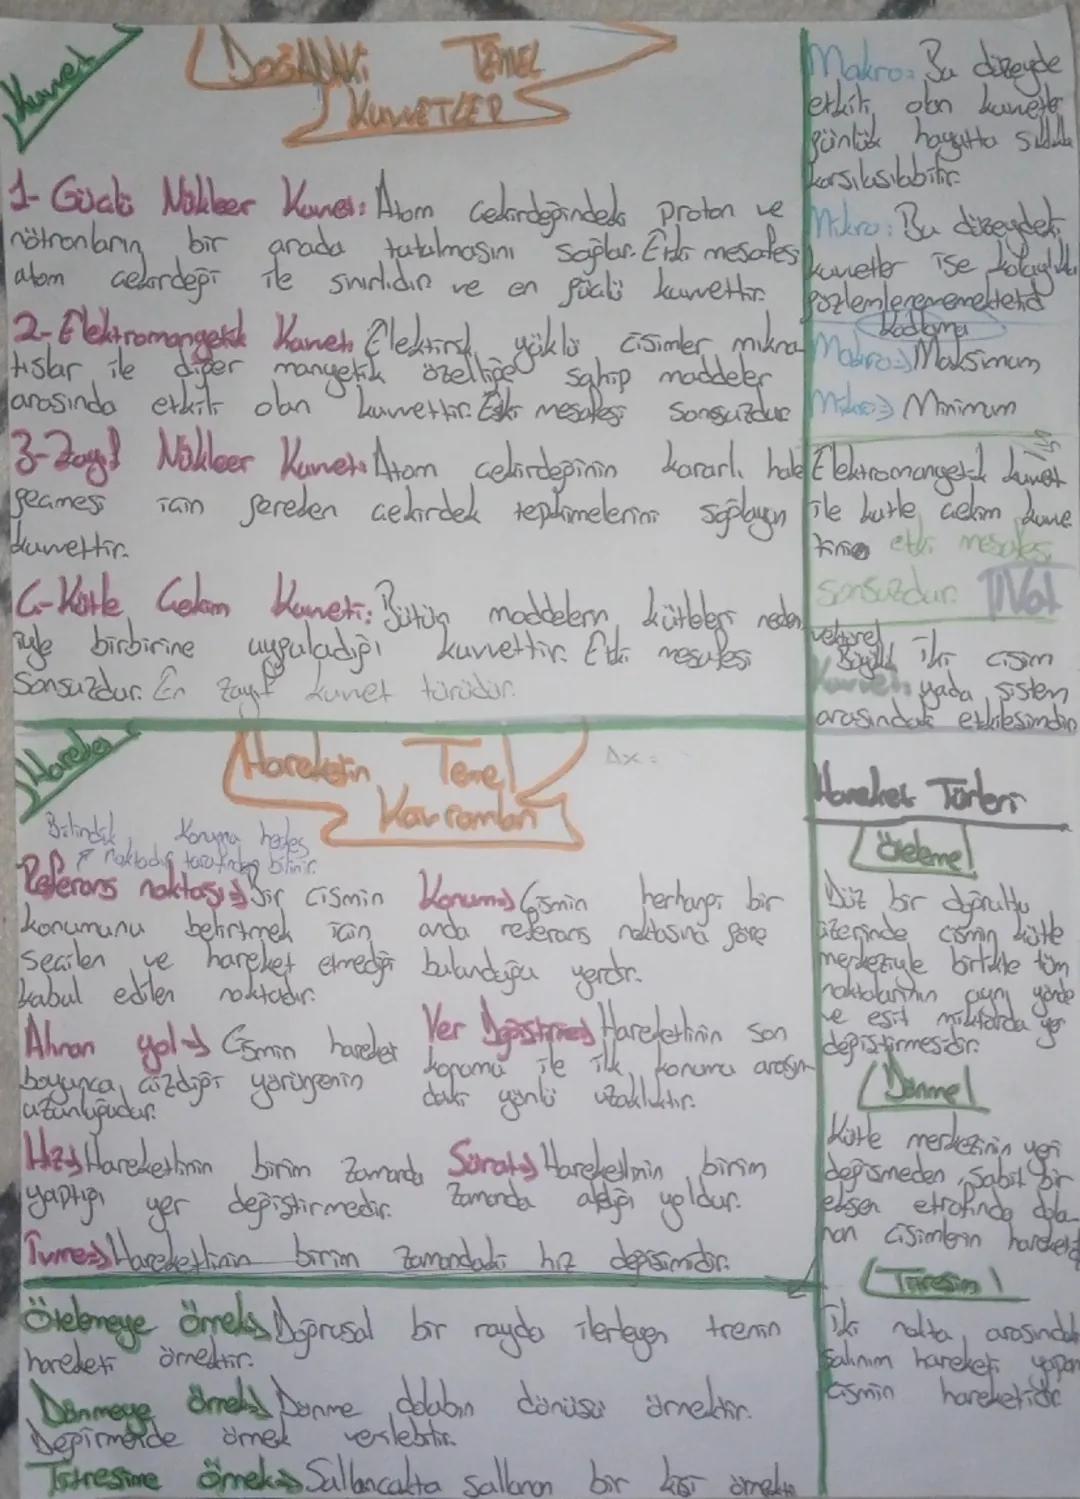 Kuvvet
DOĞADAKİ TEMEL
KUVVETLER
1- Güçlü Nükleer Kuvvet: Atom çekirdeğindeki proton ve
nötronların bir arada tutulmasını sağlar. Etki mesafesi
atom çekirdeği ile sınırlıdır ve en güçlü kuvvettir.
2- Elektromangetik Kuvvet: Elektirik yüklü cisimler mıkna-
tıslar ile diğer manyetik özelliğe sahip maddeler
arasında etkili olan kuvvettir. Etki mesafesi sonsuzdur
3- Zayıf Nükleer Kuvvet: Atom çekirdeğinin kararlı hale
geçmesi için gereken çekirdek tepkimelerini sağlayan
kuvvettir.
4- Kütle Çekim Kuvveti: Bütün maddelerin kütleleri neden
iyle birbirine uyguladığı kuvvettir. Etki mesafesi
Sonsuzdur. En zayıf kuvvet türüdür.
Makro: Bu düzeyde
etkili olan kuvvetler
günlük hayatta sıklıkla
karşılaşılabilir.
Mikro: Bu düzeydeki
kuvvetler ise kolaylıkla
gözlemlenememektedir
kodlama
Makro⇒ Maksimum
Mikro⇒ Minimum
Elektromangetik kuvvet
ile kütle çekim kuvve
tinin etki mesafesi
sonsuzdur.
vektörel
Büyüklük iki cisim
Kuvvet: yada sistem
arasındaki etkileşimdir
Hareket
Hareketin Temel
Kavramları
Δx =
Bilindik noktadır
Konuma herkes tarafından bilinir.
Referans noktası⇒ Bir cismin
konumunu belirtmek için
seçilen ve hareket etmediği
kabul edilen noktadır.
Konum⇒ Cismin herhangi bir
anda referans noktasına göre
bulunduğu yerdir.
Alınan yol⇒ Cismin hareket
boyunca çizdiği yörüngenin
uzunluğudur.
Yer Değiştirme⇒ Hareketlinin son
konumu ile ilk konumu arasın
daki yönlü uzaklıktır.
Hız⇒ Hareketlinin birim zamanda
yaptığı yer değiştirmedir.
Sürat⇒ Hareketlinin birim
zamanda aldığı yoldur.
İvme⇒ Hareketlinin birim zamandaki hız değişimidir.
Ötelemeye örnek⇒ Doğrusal bir rayda ilerleyen trenin
hareketi örnektir.
Dönmeye örnek⇒ Dönme dolabın dönüşü örnektir.
Değirmende örnek verilebilir.
Titreşime örnek⇒ Sallancakta sallanan bir kişi örnektir
Hareket Türleri
Öteleme
Düz bir doğrultu
üzerinde cismin kütle
merkeziyle birlikte tüm
noktalarının aynı yönde
ve eşit miktarda yer
değiştirmesidir.
Dönme
Kütle merkezinin yeri
değişmeden, sabit bir
eksen etrafında dola-
nan cisimlerin hareketi
Titreşim
İki nokta arasındaki
salınım hareketi yapan
cismin hareketidir